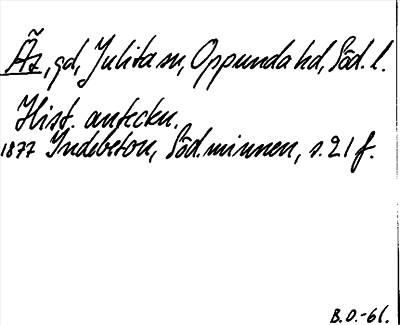 Äs, gd, Julita sn, Oppunda hd, Söd. l.
Hist. anteckn.
1877 Indebetou, Söd. minnen, s. 21 f.
B.O.-61.